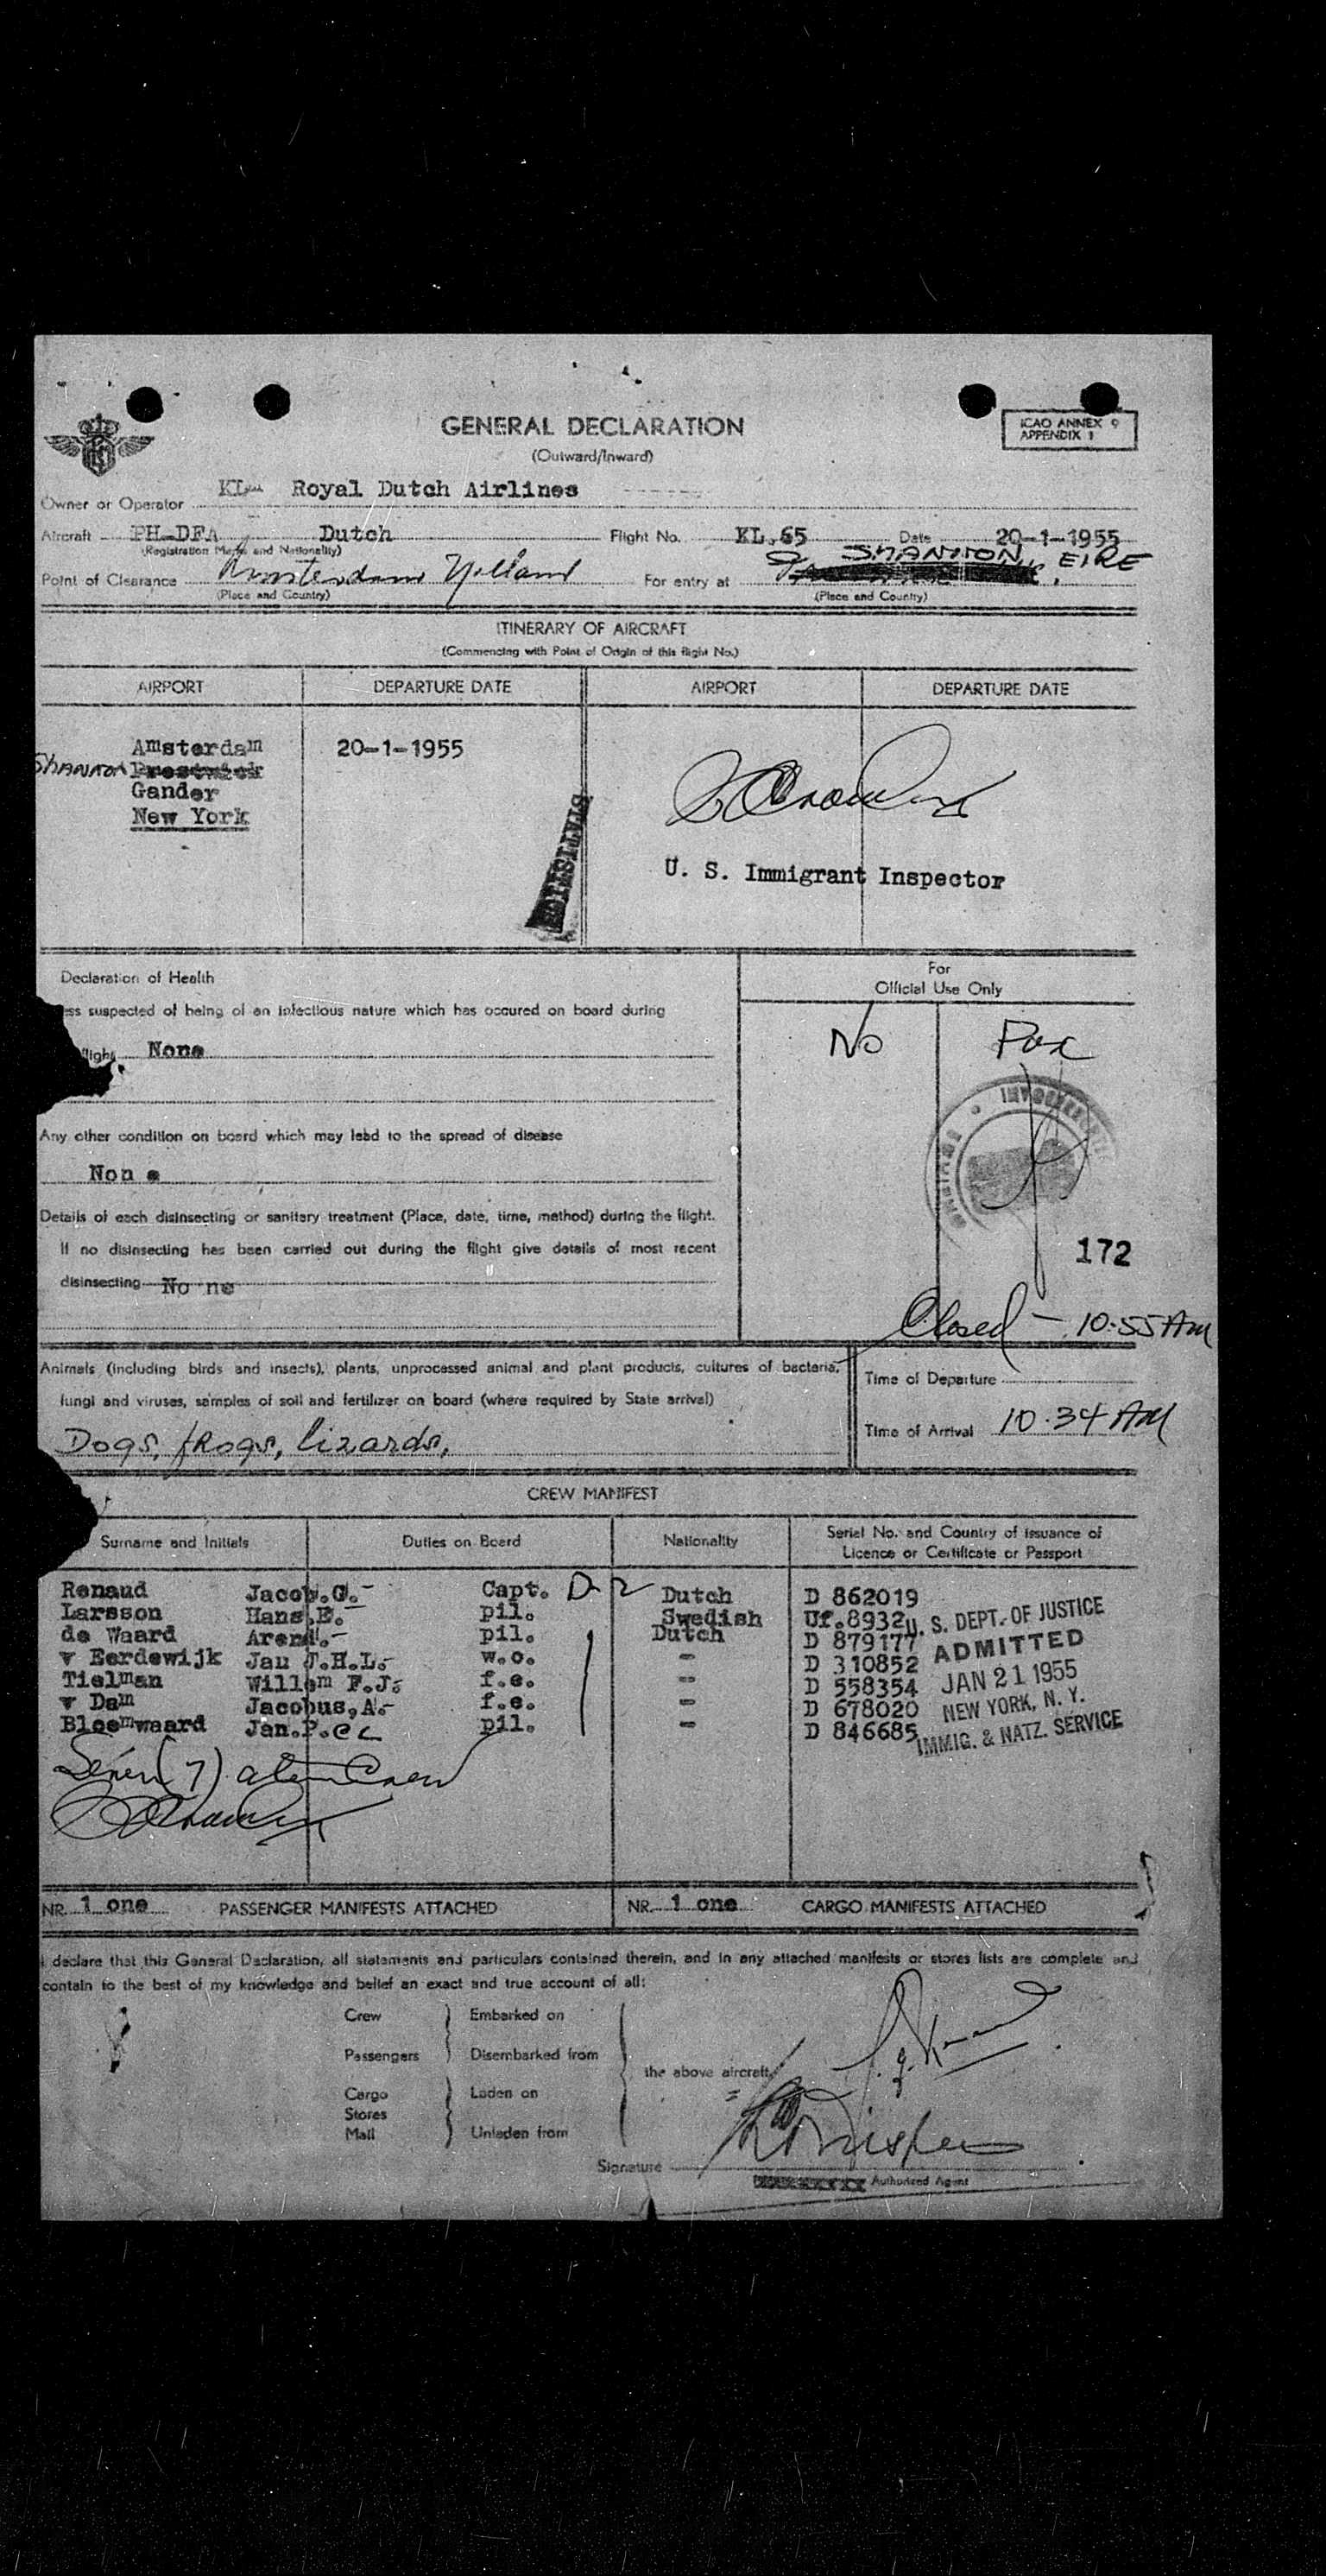 GENERAL DECLARATION
(Outward/Inward)
ICAO ANNEX 9
APPENDIX 1
Owner or Operator KLM Royal Dutch Airlines
Aircraft PH-DFA Dutch Flight No. KL.65 Date 20-1-1955
(Registration Marks and Nationality)
SHANNON, EIRE
Point of Clearance Amsterdam Holland For entry at
(Place and Country) (Place and Country)
ITINERARY OF AIRCRAFT
(Commencing with Point of Origin of this flight No.)
AIRPORT DEPARTURE DATE AIRPORT DEPARTURE DATE
Amsterdam 20-1-1955
SHANNON Prestwick
Gander
New York
STATISTICS
U. S. Immigrant Inspector
Declaration of Health
For
Official Use Only
ess suspected of being of an infectious nature which has occured on board during
flight None
No Pax
Any other condition on board which may lead to the spread of disease
Non e
Details of each disinsecting or sanitary treatment (Place, date, time, method) during the flight.
If no disinsecting has been carried out during the flight give details of most recent
172
disinsecting No ne
Closed - 10:55 AM
Animals (including birds and insects), plants, unprocessed animal and plant products, cultures of bacteria,
fungi and viruses, samples of soil and fertilizer on board (where required by State arrival)
Dogs, frogs, lizards,
Time of Departure
Time of Arrival 10.34 AM
CREW MANIFEST
Surname and Initials Duties on Board Nationality Serial No. and Country of issuance of
Licence or Certificate or Passport
Renaud Jacob.G.- Capt. D-2 Dutch D 862019
Larsson Hans.E.- pil. Swedish Uf.8932
de Waard Arend.- pil. Dutch D 879177
v Eerdewijk Jan T.H.L.- w.o. - D 310852
Tielman Willem F.J. f.e. - D 558354
v Dam Jacobus,A.- f.e. - D 678020
Bloemwaard Jan.P. pil. - D 846685
U. S. DEPT. OF JUSTICE
ADMITTED
JAN 21 1955
NEW YORK, N. Y.
IMMIG. & NATZ. SERVICE
Seven (7) alien Crew
NR. 1 one PASSENGER MANIFESTS ATTACHED NR. 1 one CARGO MANIFESTS ATTACHED
I declare that this General Declaration, all statements and particulars contained therein, and in any attached manifests or stores lists are complete and
contain to the best of my knowledge and belief an exact and true account of all:
Crew Embarked on
Passengers Disembarked from
the above aircraft
Cargo Laden on
Stores
Mail Unladen from
Signature
Authorized Agent